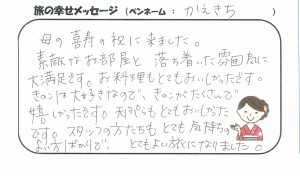 旅の幸せメッセージ（ペンネーム：かえきち）
母の喜寿の祝に来ました。
素敵なお部屋と落ち着いた雰囲気に
大満足です。お料理もとてもおいしかったです。
きのこは大好きなので、きのこがたくさんで
嬉しかったです。天ぷらもとてもおいしかった
です。スタッフの方たちもとても気持ちの
良い方ばかりで、とてもよい旅になりました。